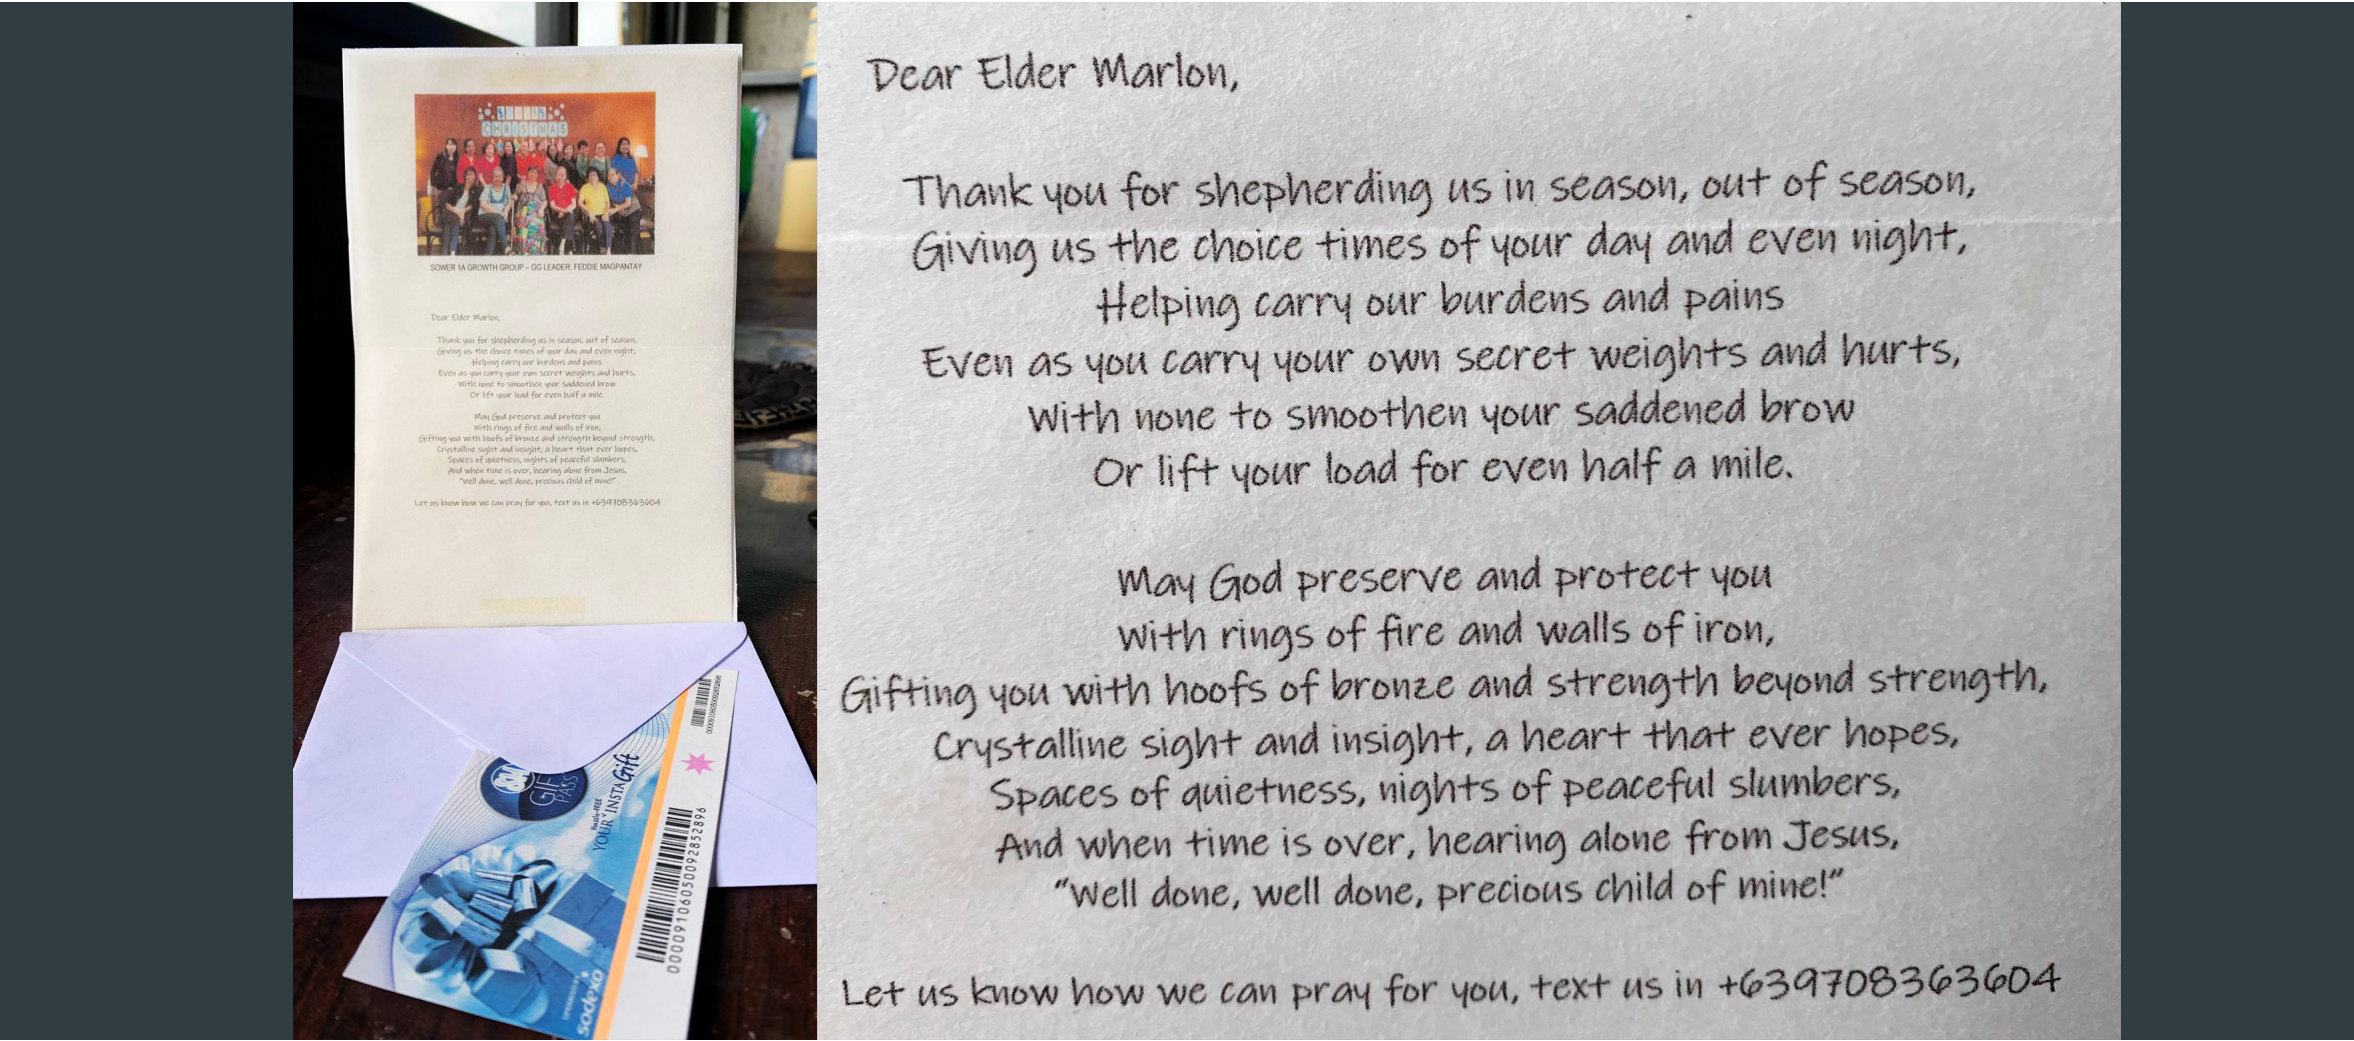 CHRISTMAS
SOWER 1A GROWTH GROUP – GG LEADER: FEDDIE MAGPANTAY
Dear Elder Marlon,
Thank you for shepherding us in season, out of season,
Giving us the choice times of your day and even night,
Helping carry our burdens and pains
Even as you carry your own secret weights and hurts,
With none to smoothen your saddened brow
Or lift your load for even half a mile.
May God preserve and protect you
With rings of fire and walls of iron,
Gifting you with hoofs of bronze and strength beyond strength,
Crystalline sight and insight, a heart that ever hopes,
Spaces of quietness, nights of peaceful slumbers,
And when time is over, hearing alone from Jesus,
"Well done, well done, precious child of mine!"
Let us know how we can pray for you, text us in +639708363604
SM
GIFT
PASS
Hassle-FREE
YOUR INSTAGift
sodexo
00009106050092852896
00009106050092852896
Dear Elder Marlon,
Thank you for shepherding us in season, out of season,
Giving us the choice times of your day and even night,
Helping carry our burdens and pains
Even as you carry your own secret weights and hurts,
With none to smoothen your saddened brow
Or lift your load for even half a mile.
May God preserve and protect you
With rings of fire and walls of iron,
Gifting you with hoofs of bronze and strength beyond strength,
Crystalline sight and insight, a heart that ever hopes,
Spaces of quietness, nights of peaceful slumbers,
And when time is over, hearing alone from Jesus,
"Well done, well done, precious child of mine!"
Let us know how we can pray for you, text us in +639708363604